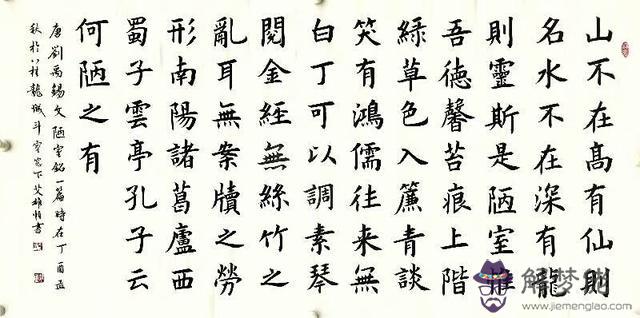 山不在髙有仙則
名水不在深有龍
則靈斯是陋室惟
吾徳馨苔痕上階
綠草色入簾青談
笑有鴻儒往來無
白丁可以調素琴
閱金經無絲竹之
亂耳無案牘之勞
形南陽諸葛廬西
蜀子雲亭孔子云
何陋之有
唐劉禹錫文陋室銘一篇時在丁酉孟
秋於八桂龍城斗室窗下艾書
解梦网
www.jiemenglao.com